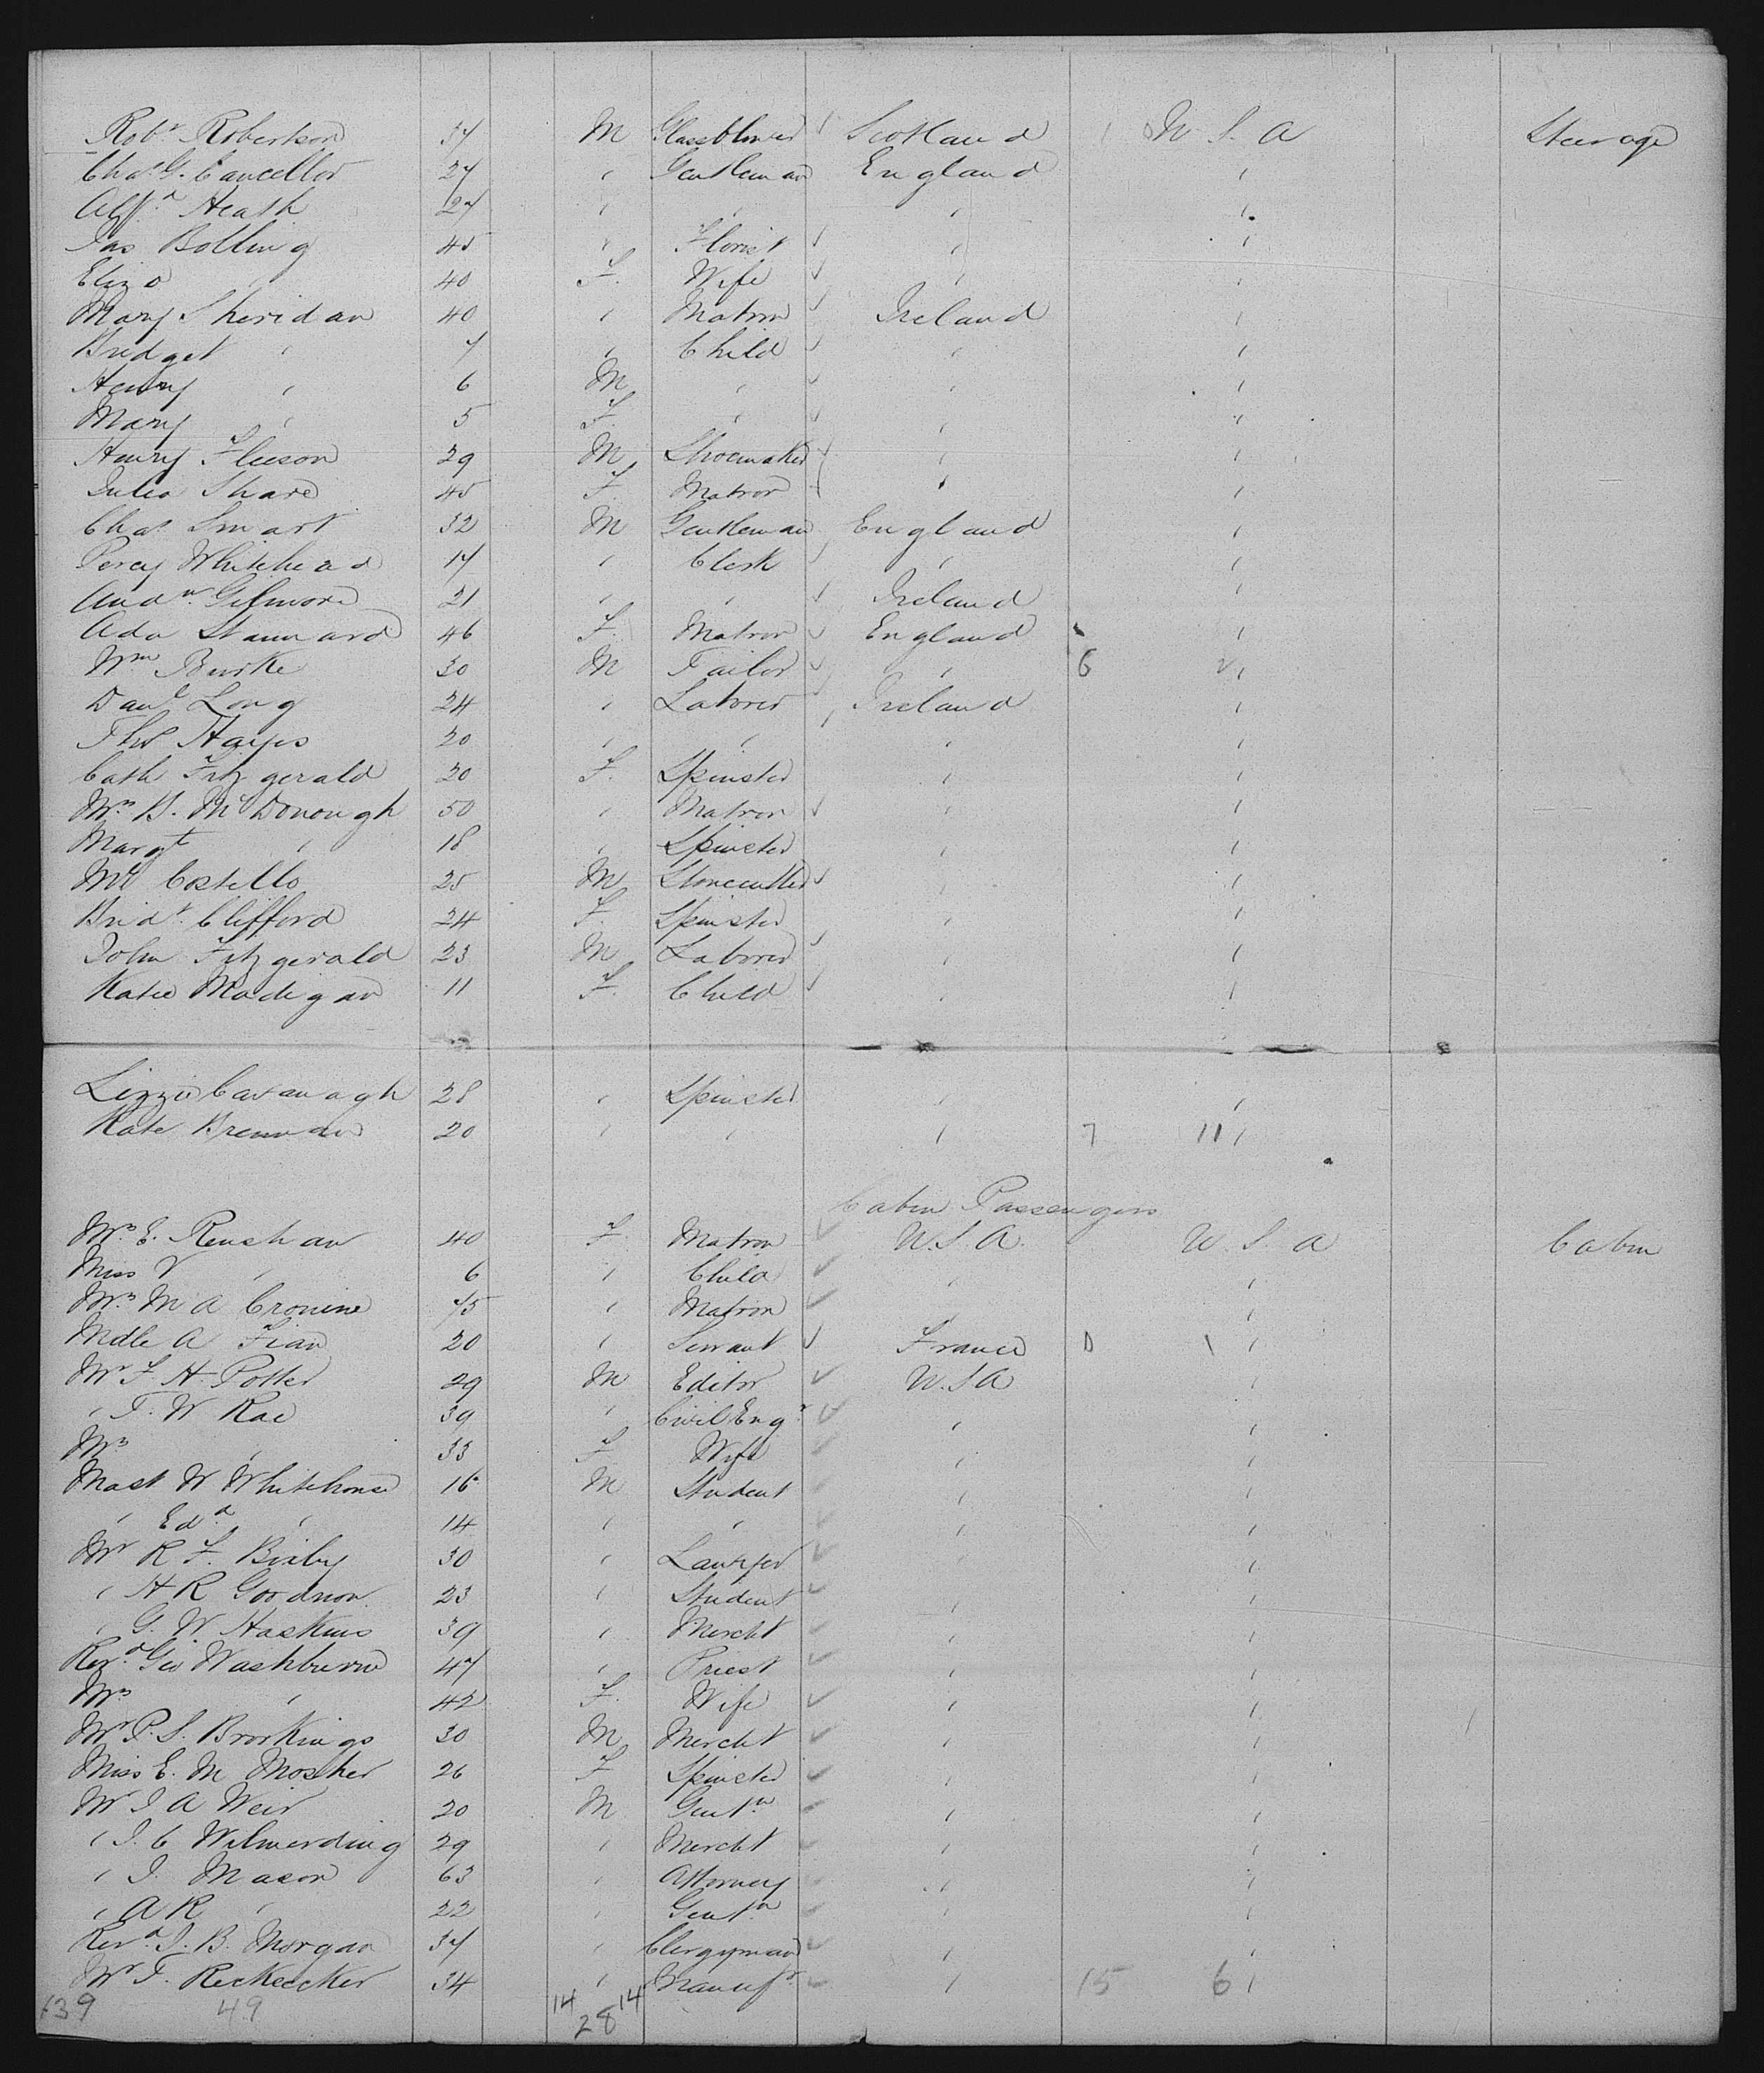 Robt Robertson 37 M Glassblower Scotland U S A Steerage
Chas G. Cancellor 27 " Gentleman England "
Alfd Heath 27 " " " "
Jas Bolling 45 " Florist " "
Eliza " 40 F. Wife " "
Mary Sheridan 40 " Matron Ireland "
Bridget " 7 " Child " "
Henry " 6 M " " "
Mary " 5 F. " " "
Henry Fleeson 29 M Shoemaker " "
Julia Share 45 F. Matron " "
Chas Smart 32 M Gentleman England "
Percy Whitehead 17 " Clerk " "
Andw Gilmore 21 " " Ireland "
Ada Stannard 46 F. Matron England "
Wm Burke 30 M Tailor " 6 "
Danl Long 24 " Laborer Ireland "
Thos Hayes 20 " " " "
Cath Fitzgerald 20 F. Spinster " "
Mrs B. McDonough 50 " Matron " "
Margt " 18 " Spinster " "
Ml Costello 25 M Stonecutter " "
Bridt Clifford 24 F. Spinster " "
John Fitzgerald 23 M Laborer " "
Katie Madigan 11 F. Child " "
Lizzie Cavanagh 28 " Spinster " "
Kate Brennan 20 " " " 7 11 "
Cabin Passengers
Mrs E. Renshaw 40 F. Matron U.S.A. U. S. A Cabin
Miss V " 6 " Child " "
Mrs M A Cronine 75 " Matron " "
Mdlle A Fian 20 " Servant France 0 1 "
Mr F. H. Potter 29 M Editor U.S.A "
" T. W Rae 39 " Civil Engr " "
Mrs " 33 F Wife " "
Mast W Whitehouse 16 M Student " "
" Edd " 14 " " " "
Mr R F. Bixby 30 " Lawyer " "
" H R Goodnow 23 " Student " "
" G. W Haskins 39 " Mercht " "
Revd Geo Washburne 47 " Priest " "
Mrs " 42 F. Wife " "
Mr P. S. Brookings 30 M Mercht " "
Miss E. M Mosher 26 F Spinster " "
Mr J A Weir 20 M Gentn " "
" J. C Wilmerding 29 " Mercht " "
" J. Mason 63 " Attorney " "
" A R " 22 " Gentn " "
Revd J. B. Morgan 37 " Clergyman " "
Mr F. Reckecker 34 " Manufr " 15 6 "
639 49 14 28 14